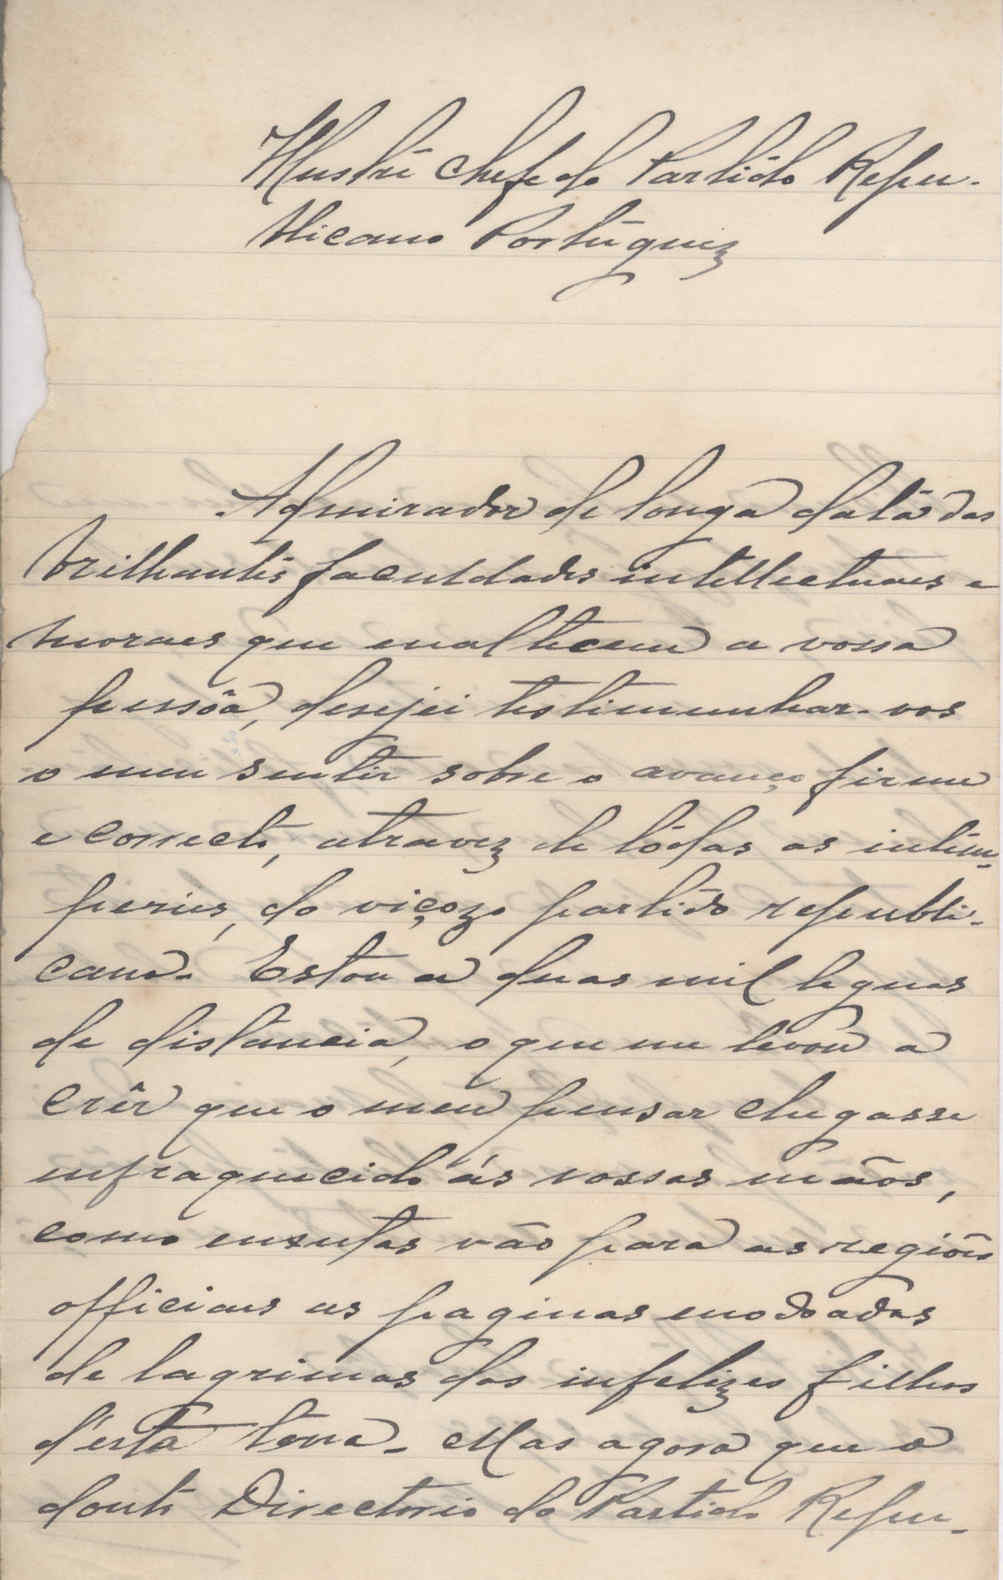 Illustre Chefe do Partido Repu-
blicano Portuguez
Admirador de longa data das
brilhantes faculdades intellectuaes e
moraes que enaltecem a vossa
pessôa, desejei testimunhar-vos
o meu sentir sobre o avanço firme
e correcto, atravez de tôdas as intem-
peries, do viçozo partido republi-
cano. Estou a duas mil leguas
de distancia, o que me levou a
crêr que o meu pensar chegasse
enfraquecido ás vossas mãos,
como enxutas vão para as regiões
officiaes as paginas enodoadas
de lagrimas dos infelizes filhos
d'esta terra. Mas agora que o
douto Directorio do Partido Repu-